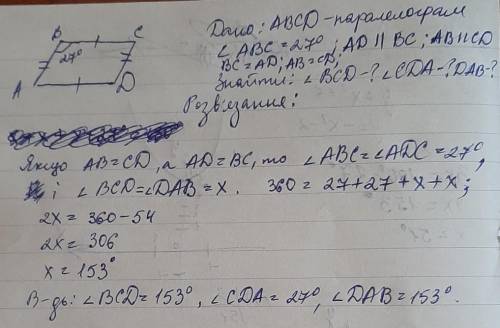 B C
27°
A D
Дано: ABCD - паралелограм
∠ABC = 27°, AD || BC; AB || CD
BC = AD; AB = CD;
Знайти: ∠BCD-? ∠CDA-? DAB-?
Розв'язання:
Якщо AB = CD, а AD = BC, то ∠ABC = ∠ADC = 27°,
і ∠BCD = ∠DAB = x. 360 = 27 + 27 + x + x;
2x = 360 - 54
2x = 306
x = 153°
В-дь: ∠BCD = 153°, ∠CDA = 27°, ∠DAB = 153°.